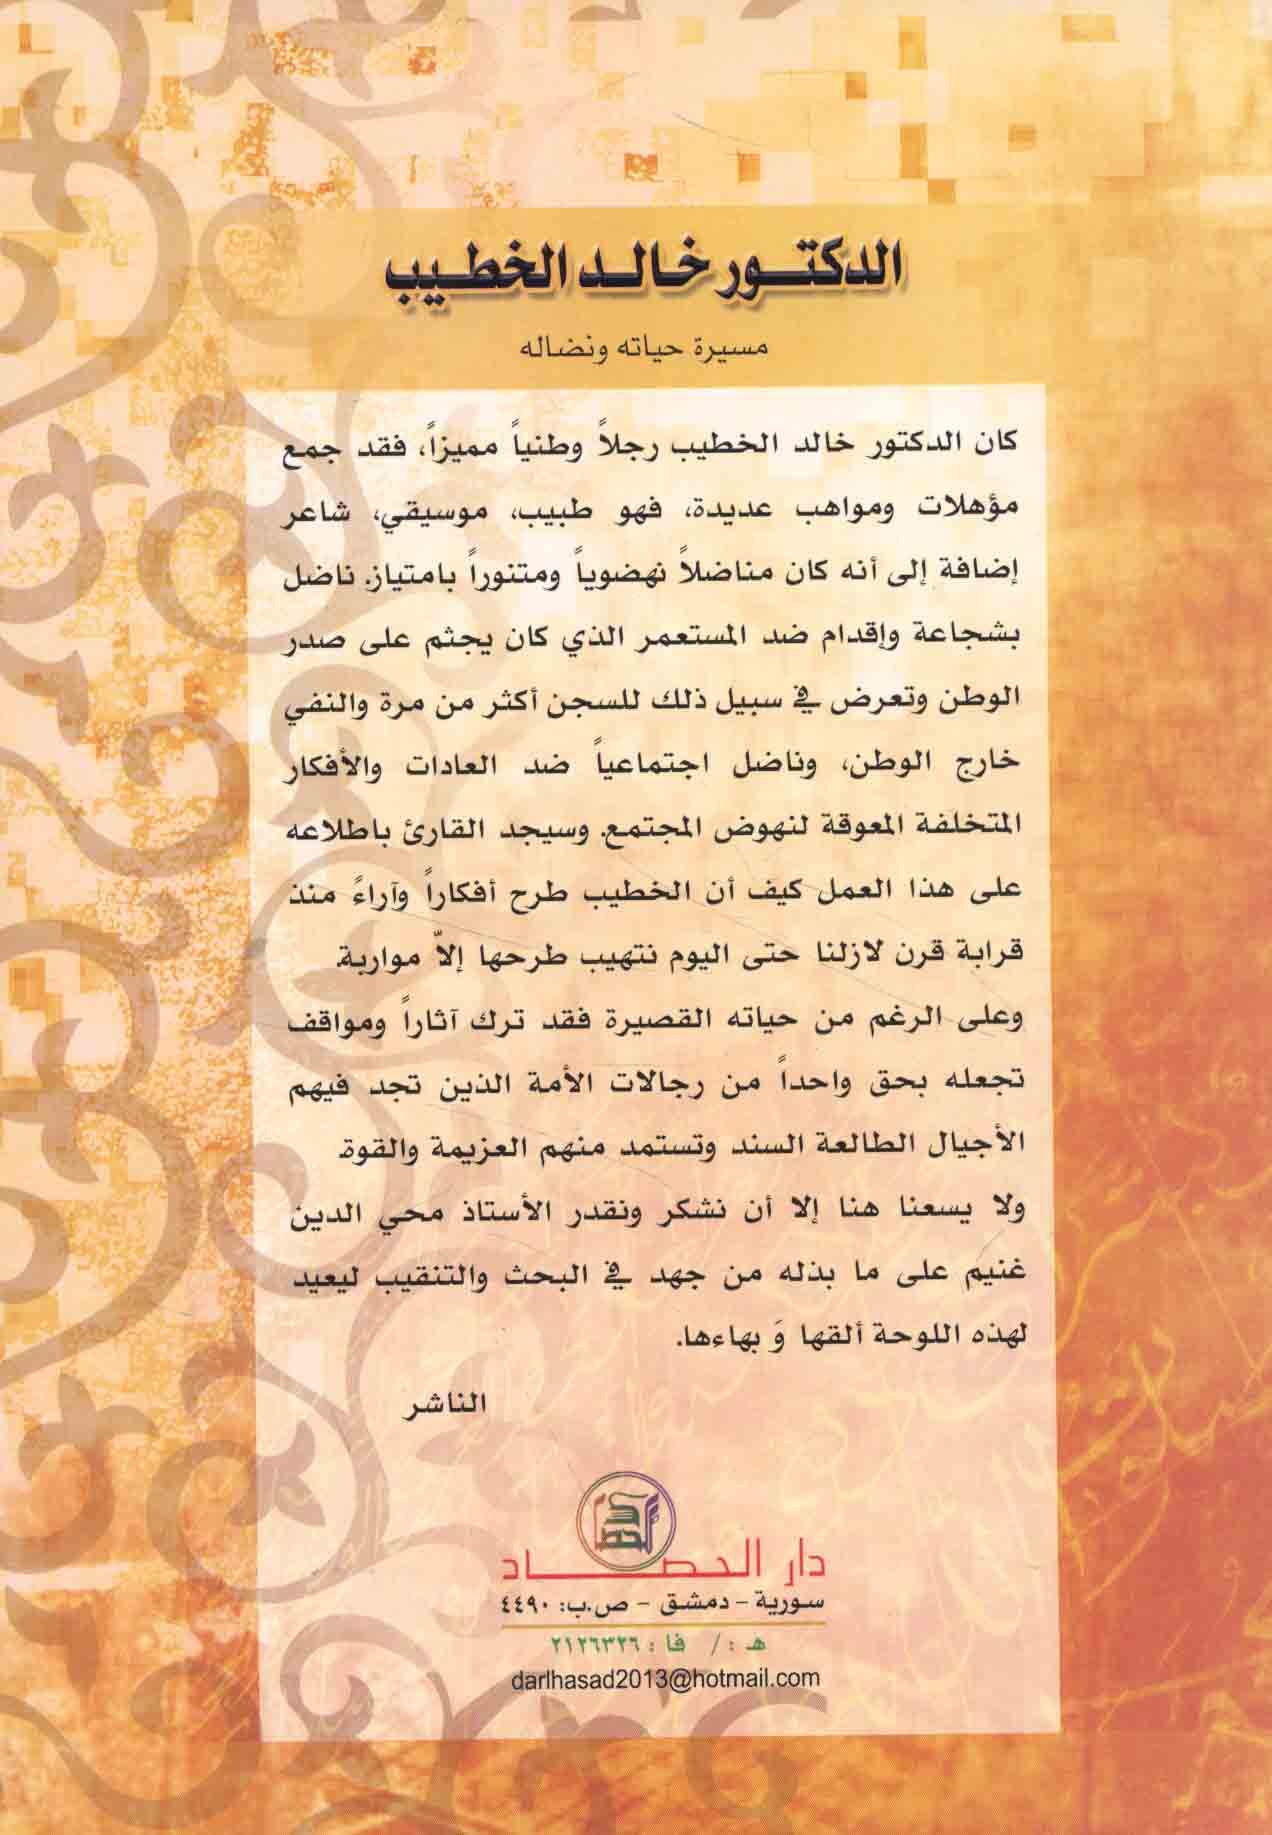 الدكتور خالد الخطيب
مسيرة حياته ونضاله
كان الدكتور خالد الخطيب رجلاً وطنياً مميزاً، فقد جمع
مؤهلات ومواهب عديدة، فهو طبيب، موسيقي، شاعر
إضافة إلى أنه كان مناضلاً نهضوياً ومتنوراً بامتياز. ناضل
بشجاعة وإقدام ضد المستعمر الذي كان يجثم على صدر
الوطن وتعرض في سبيل ذلك للسجن أكثر من مرة والنفي
خارج الوطن، وناضل اجتماعياً ضد العادات والأفكار
المتخلفة المعوقة لنهوض المجتمع. وسيجد القارئ باطلاعه
على هذا العمل كيف أن الخطيب طرح أفكاراً وآراءً منذ
قرابة قرن لازلنا حتى اليوم نتهيب طرحها إلاّ مواربة.
وعلى الرغم من حياته القصيرة فقد ترك آثاراً ومواقف
تجعله بحق واحداً من رجالات الأمة الذين تجد فيهم
الأجيال الطالعة السند وتستمد منهم العزيمة والقوة.
ولا يسعنا هنا إلا أن نشكر ونقدر الأستاذ محي الدين
غنيم على ما بذله من جهد في البحث والتنقيب ليعيد
لهذه اللوحة ألقها وَ بهاءها.
الناشر
دار الحصاد
سورية - دمشق - ص.ب: ٤٤٩٠
هـ : / فا : ٢١٢٦٣٢٦
darlhasad2013@hotmail.com